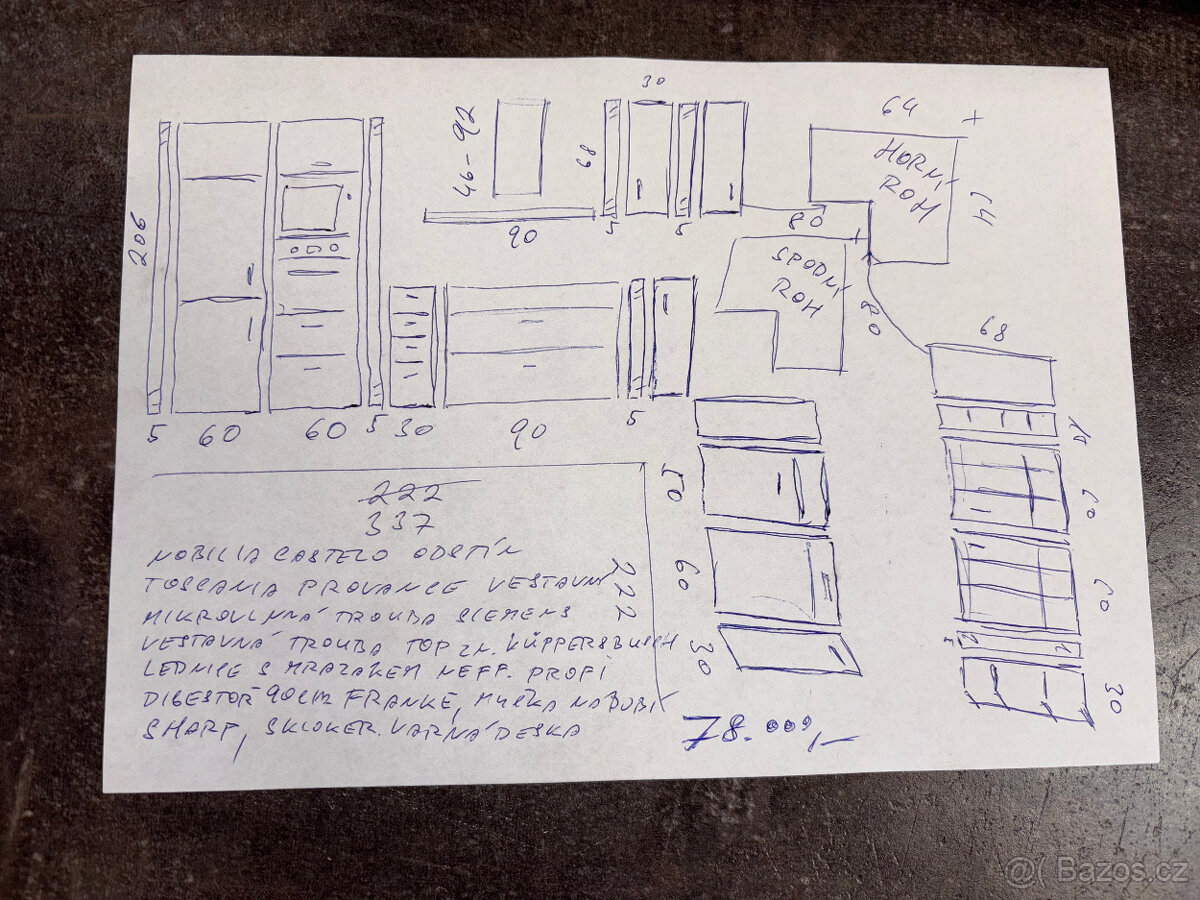 30
64
+
HORNÍ
ROH
64
46-92
68
5
5
90
80
206
SPODNÍ
ROH
80
68
5
60
60
5
30
90
5
10
50
60
60
60
30
30
222
337
222
NOBILIA CASTELO ODSTÍN
TOSCANIA PROVANCE VESTAVNÍ
MIKROVLNNÁ TROUBA SIEMENS
VESTAVNÁ TROUBA TOP ZN. KÜPPERSBUSCH
LEDNICE S MRAZAKEM NEFF. PROFI
DIGESTOŘ 90CM FRANKE, MYČKA NÁDOBÍ
SHARP, SKLOKER. VARNÁ DESKA
78.000,-
@( Bazos.cz